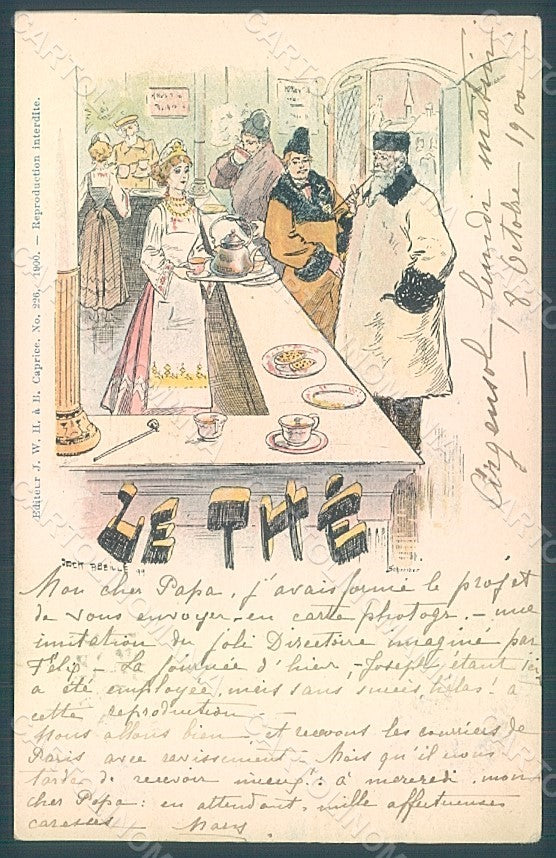 Editeur J. W. H. à B. Caprice. No. 226. 1900. — Reproduction interdite.
lundi matin
8 Octobre 1900
LE THÉ
JACK ABEILLÉ 99
Schreiber
Mon cher Papa, j'avais formé le projet
de vous envoyer en carte photogr. — une
imitation du joli Directoire imaginé par
Félix — La journée d'hier, Joseph étant ici
a été employée, mais sans succès hélas! à
cette reproduction —
Nous allons bien — et recevons les courriers de
Paris avec ravissement — Mais qu'il nous
tarde de recevoir mieux! : à mercredi, mon
cher Papa : en attendant, mille affectueuses
caresses —
CARTOLINOMANIA